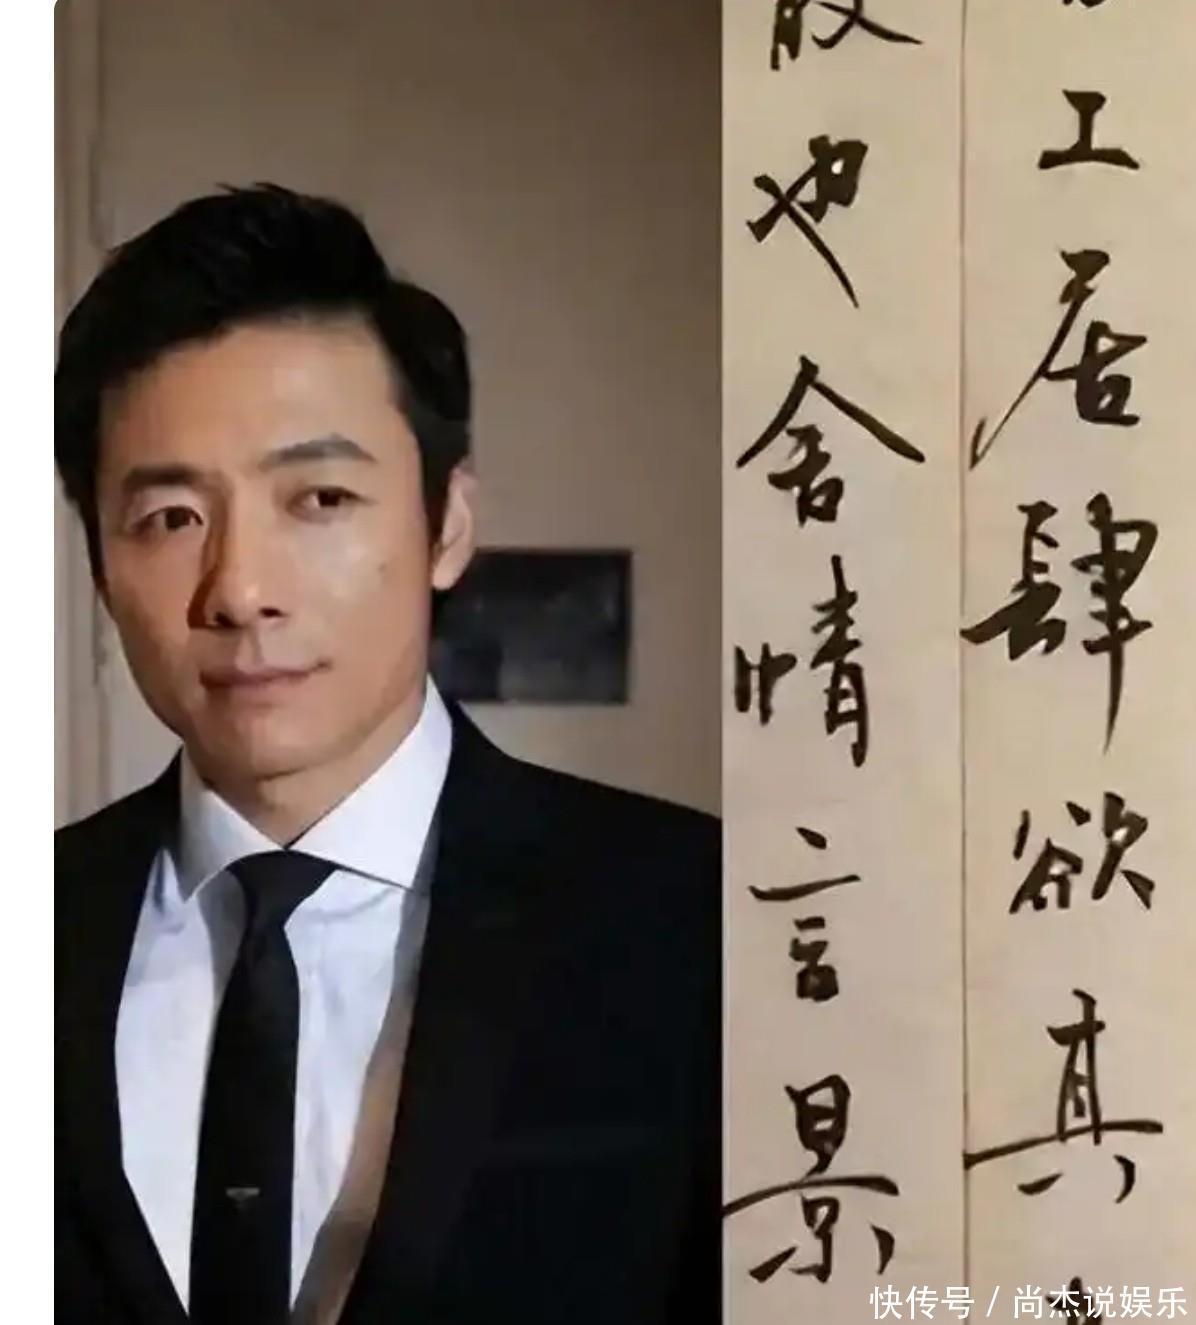 工居肆欲真
也舍情言景
快传号 / 尚杰说娱乐